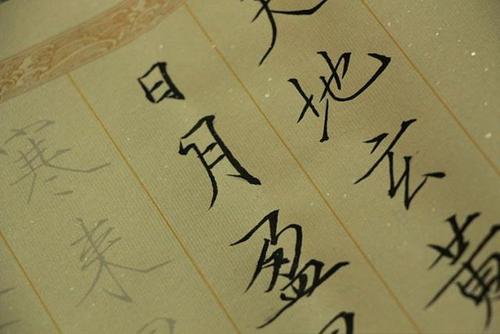 天地玄黄
日月盈
寒来